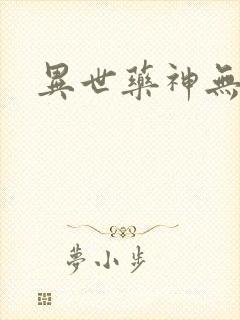 異世藥神無
夢小步